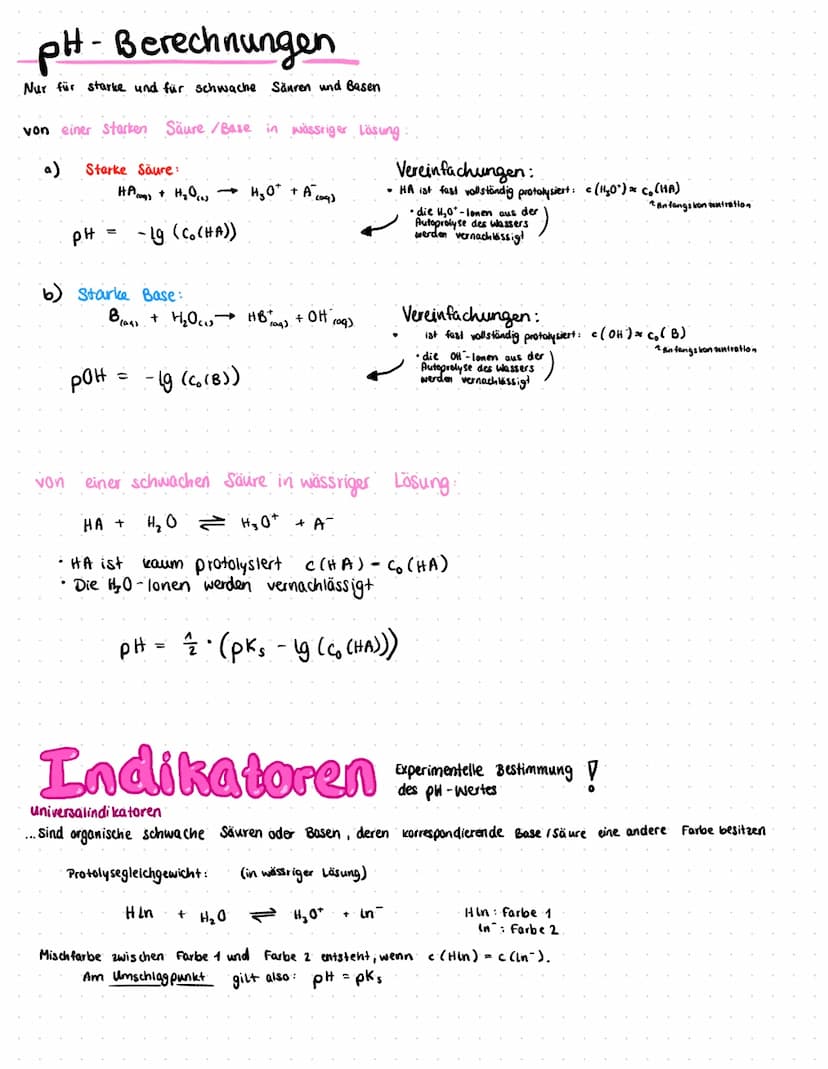 pH - Berechnungen
Nur für starke und für schwache Säuren und Basen
von einer starken Säure / Base in wässriger Lösung:
a) Starke Säure:
HA(aq) + H₂O(l) → H₃O⁺ + A⁻(aq)
pH = -lg (c₀(HA))
Vereinfachungen:
• HA ist fast vollständig protolysiert: c(H₃O⁺) ≈ c₀(HA)
↑ Anfangskonzentration
• die H₃O⁺-Ionen aus der
Autoprolyse des Wassers
werden vernachlässigt
b) Starke Base:
B(aq) + H₂O(l) → HB⁺(aq) + OH⁻(aq)
pOH = -lg (c₀(B))
Vereinfachungen:
• ist fast vollständig protolysiert: c(OH⁻) ≈ c₀(B)
↑ Anfangskonzentration
• die OH⁻-Ionen aus der
Autoprolyse des Wassers
werden vernachlässigt
von einer schwachen Säure in wässriges Lösung:
HA + H₂O ⇌ H₃O⁺ + A⁻
• HA ist kaum protolysiert c(HA) = c₀(HA)
• Die H₃O-Ionen werden vernachlässigt
pH = 1/2 · (pKs - lg (c₀(HA)))
Indikatoren
Experimentelle Bestimmung
des pH-Wertes !
Universalindikatoren
... sind organische schwache Säuren oder Basen, deren korrespondierende Base / Säure eine andere Farbe besitzen
Protolysegleichgewicht: (in wässriger Lösung)
HIn + H₂O ⇌ H₃O⁺ + In⁻
HIn: Farbe 1
In⁻: Farbe 2
Mischfarbe zwischen Farbe 1 und Farbe 2 entsteht, wenn c(HIn) = c(In⁻).
Am Umschlagpunkt gilt also: pH = pKs